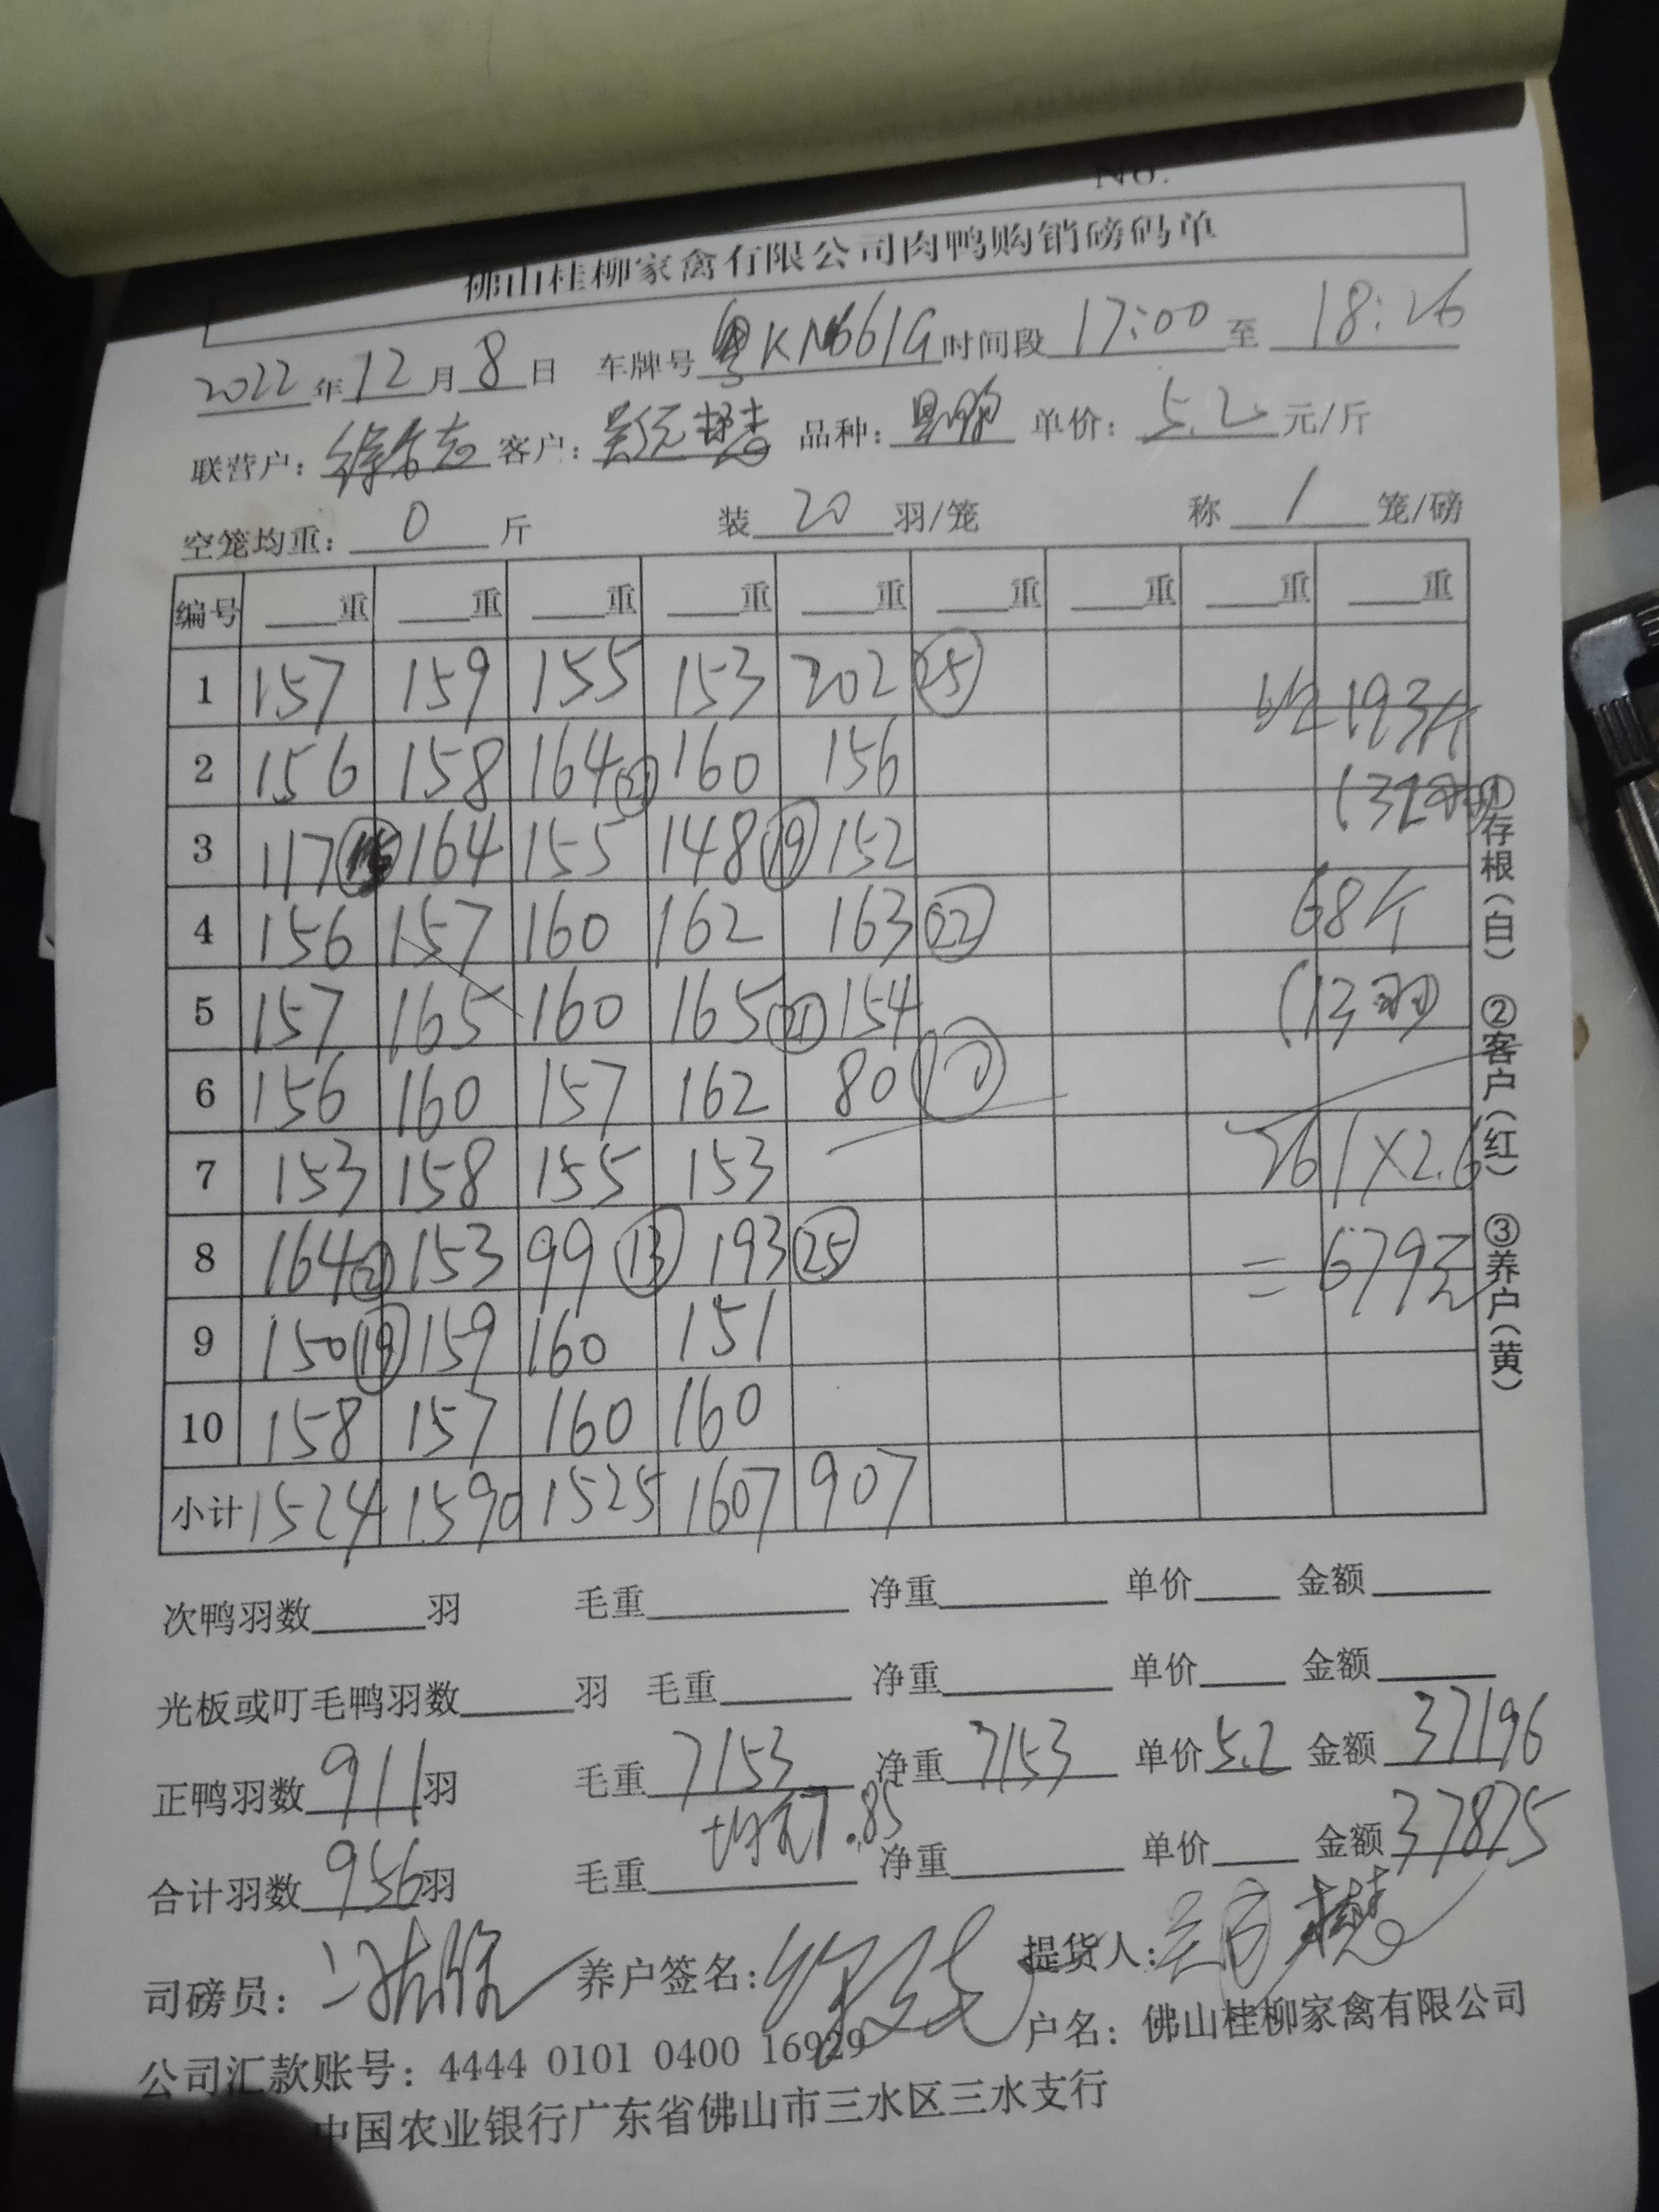 No.
佛山桂柳家禽有限公司肉鸭购销磅码单
2022年12月8日 车牌号粤KN661G时间段17:00至18:26
联营户: 客户: 品种: 单价: 5.2元/斤
空笼均重: 0 斤 装 20 羽/笼 称 1 笼/磅
编号 重 重 重 重 重 重 重 重 重
1 157 159 155 153 202 (25)
2 156 158 164 (21) 160 156
3 117 (15) 164 155 148 (19) 152
4 156 157 160 162 163 (22)
5 157 165 160 165 (21) 154
6 156 160 157 162 80 (10)
7 153 158 155 153
8 164 (21) 153 99 (13) 193 (25)
9 150 (19) 159 160 151
10 158 157 160 160
小计 1524 1590 1525 1607 907
193斤
(32羽)
68斤
(13羽)
261×2.6
=679元
①存根(白) ②客户(红) ③养户(黄)
次鸭羽数 羽 毛重 净重 单价 金额
光板或叮毛鸭羽数 羽 毛重 净重 单价 金额
正鸭羽数 911 羽 毛重 7153 净重 7153 单价 5.2 金额 37196
均重7.85
合计羽数 956 羽 毛重 净重 单价 金额 37875
司磅员: 养户签名: 提货人:
公司汇款账号: 4444 0101 0400 16929 户名: 佛山桂柳家禽有限公司
中国农业银行广东省佛山市三水区三水支行